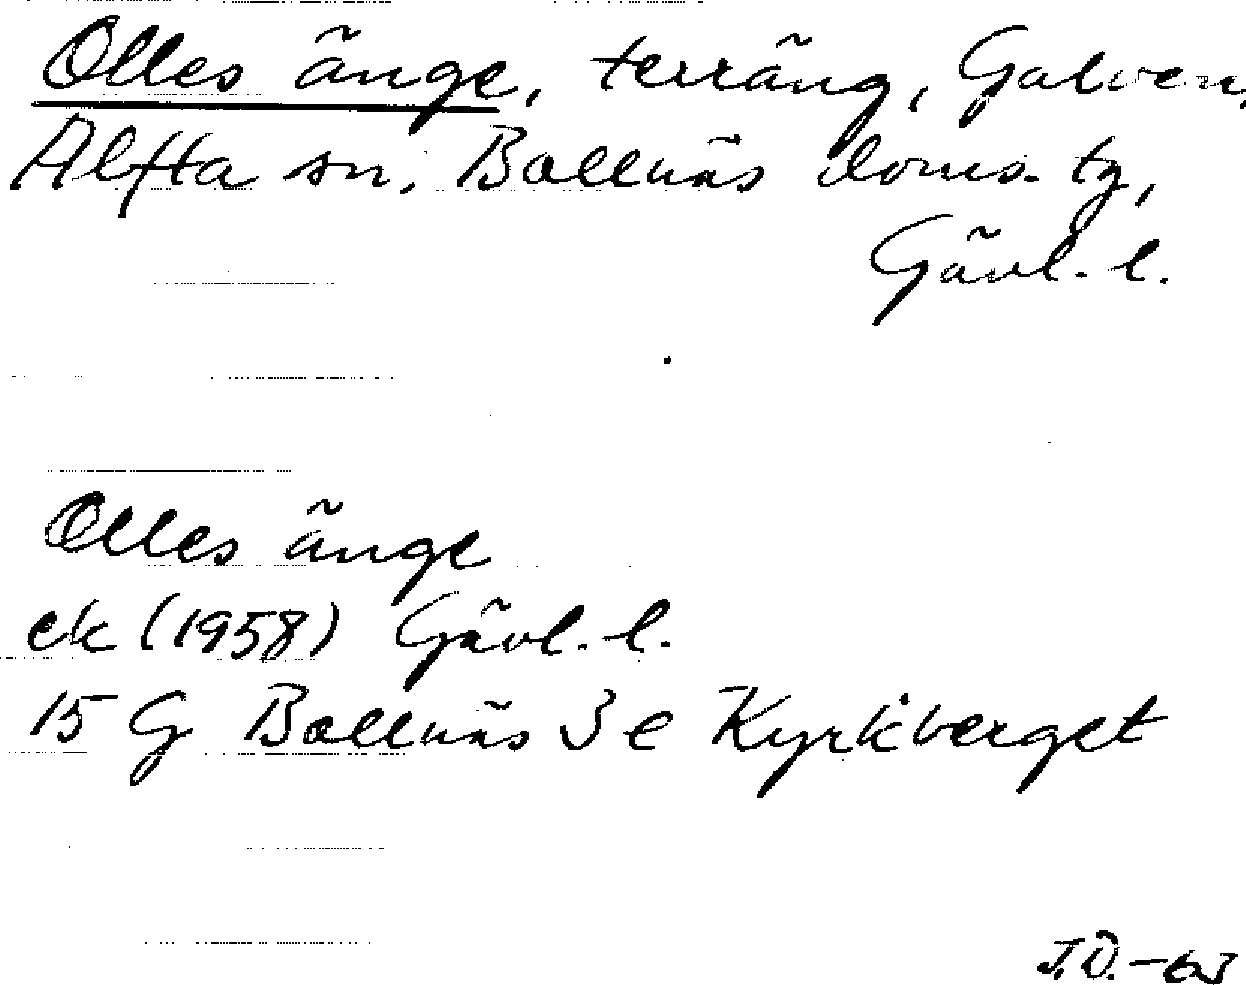 Olles änge, terräng, Galven,
Alfta sn, Bollnäs doms. tg,
Gävl. l.
Olles änge
ek (1958) Gävl. l.
15 G Bollnäs 3 e Kyrkberget
J.Ö. -63